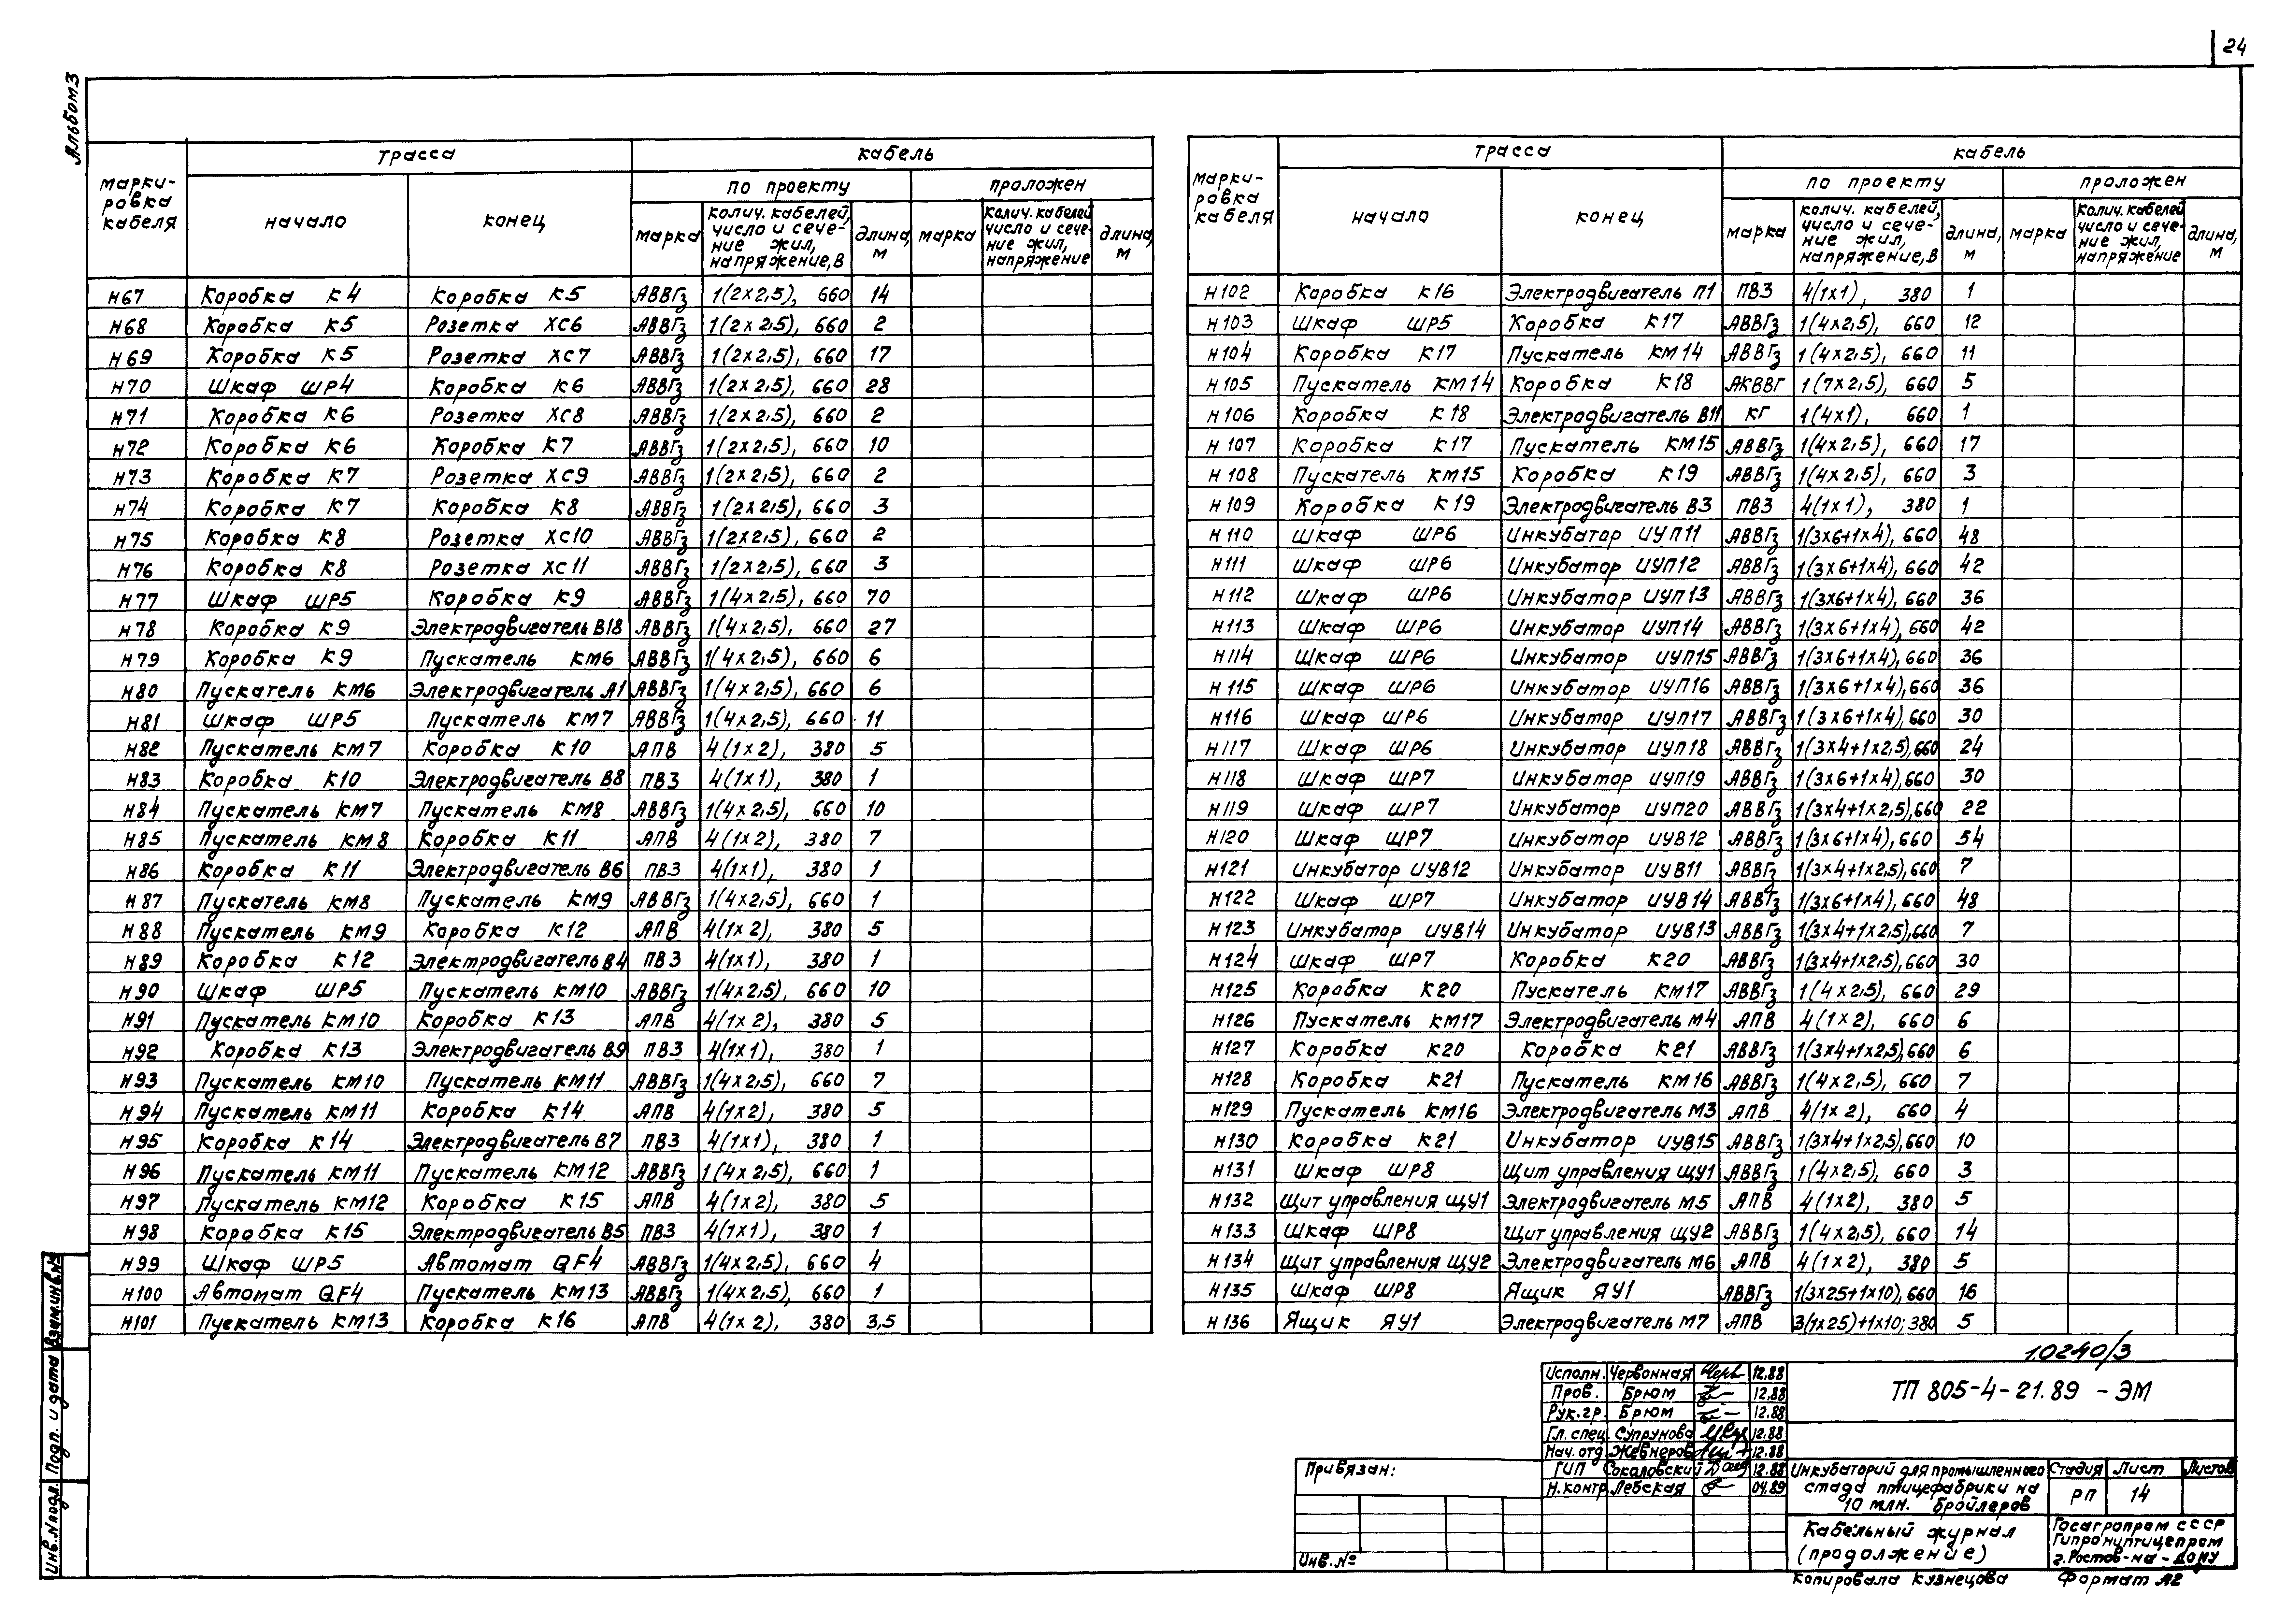 24
Альбом 3
Марки-ровка кабеля | Трасса | Кабель
начало | конец | по проекту | проложен
марка | колич. кабелей, число и сече-ние жил, напряжение, В | длина, м | марка | колич. кабелей число и сече-ние жил, напряжение | длина, м
Н67 Коробка К4 Коробка К5 АВВГз 1(2×2,5), 660 14
Н68 Коробка К5 Розетка ХС6 АВВГз 1(2×2,5), 660 2
Н69 Коробка К5 Розетка ХС7 АВВГз 1(2×2,5), 660 17
Н70 Шкаф ШР4 Коробка К6 АВВГз 1(2×2,5), 660 28
Н71 Коробка К6 Розетка ХС8 АВВГз 1(2×2,5), 660 2
Н72 Коробка К6 Коробка К7 АВВГз 1(2×2,5), 660 10
Н73 Коробка К7 Розетка ХС9 АВВГз 1(2×2,5), 660 2
Н74 Коробка К7 Коробка К8 АВВГз 1(2×2,5), 660 3
Н75 Коробка К8 Розетка ХС10 АВВГз 1(2×2,5), 660 2
Н76 Коробка К8 Розетка ХС11 АВВГз 1(2×2,5), 660 3
Н77 Шкаф ШР5 Коробка К9 АВВГз 1(4×2,5), 660 70
Н78 Коробка К9 Электродвигатель В18 АВВГз 1(4×2,5), 660 27
Н79 Коробка К9 Пускатель КМ6 АВВГз 1(4×2,5), 660 6
Н80 Пускатель КМ6 Электродвигатель А1 АВВГз 1(4×2,5), 660 6
Н81 Шкаф ШР5 Пускатель КМ7 АВВГз 1(4×2,5), 660 11
Н82 Пускатель КМ7 Коробка К10 АПВ 4(1×2), 380 5
Н83 Коробка К10 Электродвигатель В8 ПВ3 4(1×1), 380 1
Н84 Пускатель КМ7 Пускатель КМ8 АВВГз 1(4×2,5), 660 10
Н85 Пускатель КМ8 Коробка К11 АПВ 4(1×2), 380 7
Н86 Коробка К11 Электродвигатель В6 ПВ3 4(1×1), 380 1
Н87 Пускатель КМ8 Пускатель КМ9 АВВГз 1(4×2,5), 660 1
Н88 Пускатель КМ9 Коробка К12 АПВ 4(1×2), 380 5
Н89 Коробка К12 Электродвигатель В4 ПВ3 4(1×1), 380 1
Н90 Шкаф ШР5 Пускатель КМ10 АВВГз 1(4×2,5), 660 10
Н91 Пускатель КМ10 Коробка К13 АПВ 4(1×2), 380 5
Н92 Коробка К13 Электродвигатель В9 ПВ3 4(1×1), 380 1
Н93 Пускатель КМ10 Пускатель КМ11 АВВГз 1(4×2,5), 660 7
Н94 Пускатель КМ11 Коробка К14 АПВ 4(1×2), 380 5
Н95 Коробка К14 Электродвигатель В7 ПВ3 4(1×1), 380 1
Н96 Пускатель КМ11 Пускатель КМ12 АВВГз 1(4×2,5), 660 1
Н97 Пускатель КМ12 Коробка К15 АПВ 4(1×2), 380 5
Н98 Коробка К15 Электродвигатель В5 ПВ3 4(1×1), 380 1
Н99 Шкаф ШР5 Автомат QF4 АВВГз 1(4×2,5), 660 4
Н100 Автомат QF4 Пускатель КМ13 АВВГз 1(4×2,5), 660 1
Н101 Пускатель КМ13 Коробка К16 АПВ 4(1×2), 380 3,5
Марки-ровка кабеля | Трасса | Кабель
начало | конец | по проекту | проложен
марка | колич. кабелей, число и сече-ние жил, напряжение, В | длина, м | марка | колич. кабелей число и сече-ние жил, напряжение | длина, м
Н102 Коробка К16 Электродвигатель П1 ПВ3 4(1×1), 380 1
Н103 Шкаф ШР5 Коробка К17 АВВГз 1(4×2,5), 660 12
Н104 Коробка К17 Пускатель КМ14 АВВГз 1(4×2,5), 660 11
Н105 Пускатель КМ14 Коробка К18 АКВВГ 1(7×2,5), 660 5
Н106 Коробка К18 Электродвигатель В11 КГ 1(4×1), 660 1
Н107 Коробка К17 Пускатель КМ15 АВВГз 1(4×2,5), 660 17
Н108 Пускатель КМ15 Коробка К19 АВВГз 1(4×2,5), 660 3
Н109 Коробка К19 Электродвигатель В3 ПВ3 4(1×1), 380 1
Н110 Шкаф ШР6 Инкубатор ИУП11 АВВГз 1(3×6+1×4), 660 48
Н111 Шкаф ШР6 Инкубатор ИУП12 АВВГз 1(3×6+1×4), 660 42
Н112 Шкаф ШР6 Инкубатор ИУП13 АВВГз 1(3×6+1×4), 660 36
Н113 Шкаф ШР6 Инкубатор ИУП14 АВВГз 1(3×6+1×4), 660 42
Н114 Шкаф ШР6 Инкубатор ИУП15 АВВГз 1(3×6+1×4), 660 36
Н115 Шкаф ШР6 Инкубатор ИУП16 АВВГз 1(3×6+1×4), 660 36
Н116 Шкаф ШР6 Инкубатор ИУП17 АВВГз 1(3×6+1×4), 660 30
Н117 Шкаф ШР6 Инкубатор ИУП18 АВВГз 1(3×4+1×2,5), 660 24
Н118 Шкаф ШР7 Инкубатор ИУП19 АВВГз 1(3×6+1×4), 660 30
Н119 Шкаф ШР7 Инкубатор ИУП20 АВВГз 1(3×4+1×2,5), 660 22
Н120 Шкаф ШР7 Инкубатор ИУВ12 АВВГз 1(3×6+1×4), 660 54
Н121 Инкубатор ИУВ12 Инкубатор ИУВ11 АВВГз 1(3×4+1×2,5), 660 7
Н122 Шкаф ШР7 Инкубатор ИУВ14 АВВГз 1(3×6+1×4), 660 48
Н123 Инкубатор ИУВ14 Инкубатор ИУВ13 АВВГз 1(3×4+1×2,5), 660 7
Н124 Шкаф ШР7 Коробка К20 АВВГз 1(3×4+1×2,5), 660 30
Н125 Коробка К20 Пускатель КМ17 АВВГз 1(4×2,5), 660 29
Н126 Пускатель КМ17 Электродвигатель М4 АПВ 4(1×2), 660 6
Н127 Коробка К20 Коробка К21 АВВГз 1(3×4+1×2,5), 660 6
Н128 Коробка К21 Пускатель КМ16 АВВГз 1(4×2,5), 660 7
Н129 Пускатель КМ16 Электродвигатель М3 АПВ 4(1×2), 660 4
Н130 Коробка К21 Инкубатор ИУВ15 АВВГз 1(3×4+1×2,5), 660 10
Н131 Шкаф ШР8 Щит управления ЩУ1 АВВГз 1(4×2,5), 660 3
Н132 Щит управления ЩУ1 Электродвигатель М5 АПВ 4(1×2), 380 5
Н133 Шкаф ШР8 Щит управления ЩУ2 АВВГз 1(4×2,5), 660 14
Н134 Щит управления ЩУ2 Электродвигатель М6 АПВ 4(1×2), 380 5
Н135 Шкаф ШР8 Ящик ЯУ1 АВВГз 1(3×25+1×10), 660 16
Н136 Ящик ЯУ1 Электродвигатель М7 АПВ 3(1×25)+1×10; 380 5
10240/3
Исполн. Червонная 12.88
Пров. Брюм 12.88
Рук.гр. Брюм 12.88
Гл. спец. Супрунова 12.88
Нач. отд. Жевнеров 12.88
ГИП Соколовский 12.88
Н.контр. Лебская 04.89
ТП 805-4-21.89 - ЭМ
Привязан:
Инв.№
Инкубаторий для промышленного стада птицефабрики на 10 млн. бройлеров
Стадия Лист Листов
РП 14
Кабельный журнал (продолжение)
Госагропром СССР
Гипронуптицепром
г. Ростов-на-Дону
Копировала Кузнецова Формат А2
Взам.инв.№
Подп. и дата
Инв.№подл.